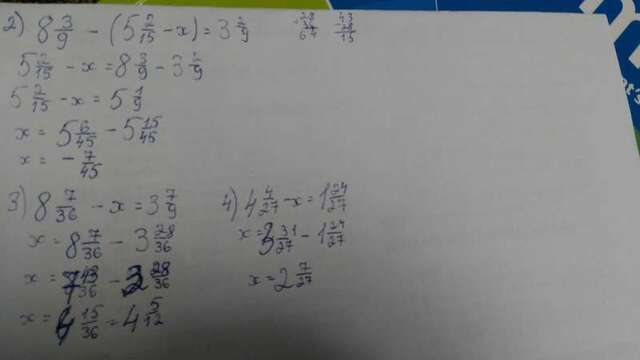 2) 8 3/9 - (5 2/15 - x) = 3 2/9
5 2/15 - x = 8 3/9 - 3 2/9
5 2/15 - x = 5 1/9
x = 5 6/45 - 5 15/45
x = - 7/45
3) 8 7/36 - x = 3 7/9
x = 8 7/36 - 3 28/36
x = 7 43/36 - 3 28/36
x = 4 15/36 = 4 5/12
4) 4 4/27 - x = 1 24/27
x = 3 31/27 - 1 24/27
x = 2 7/27